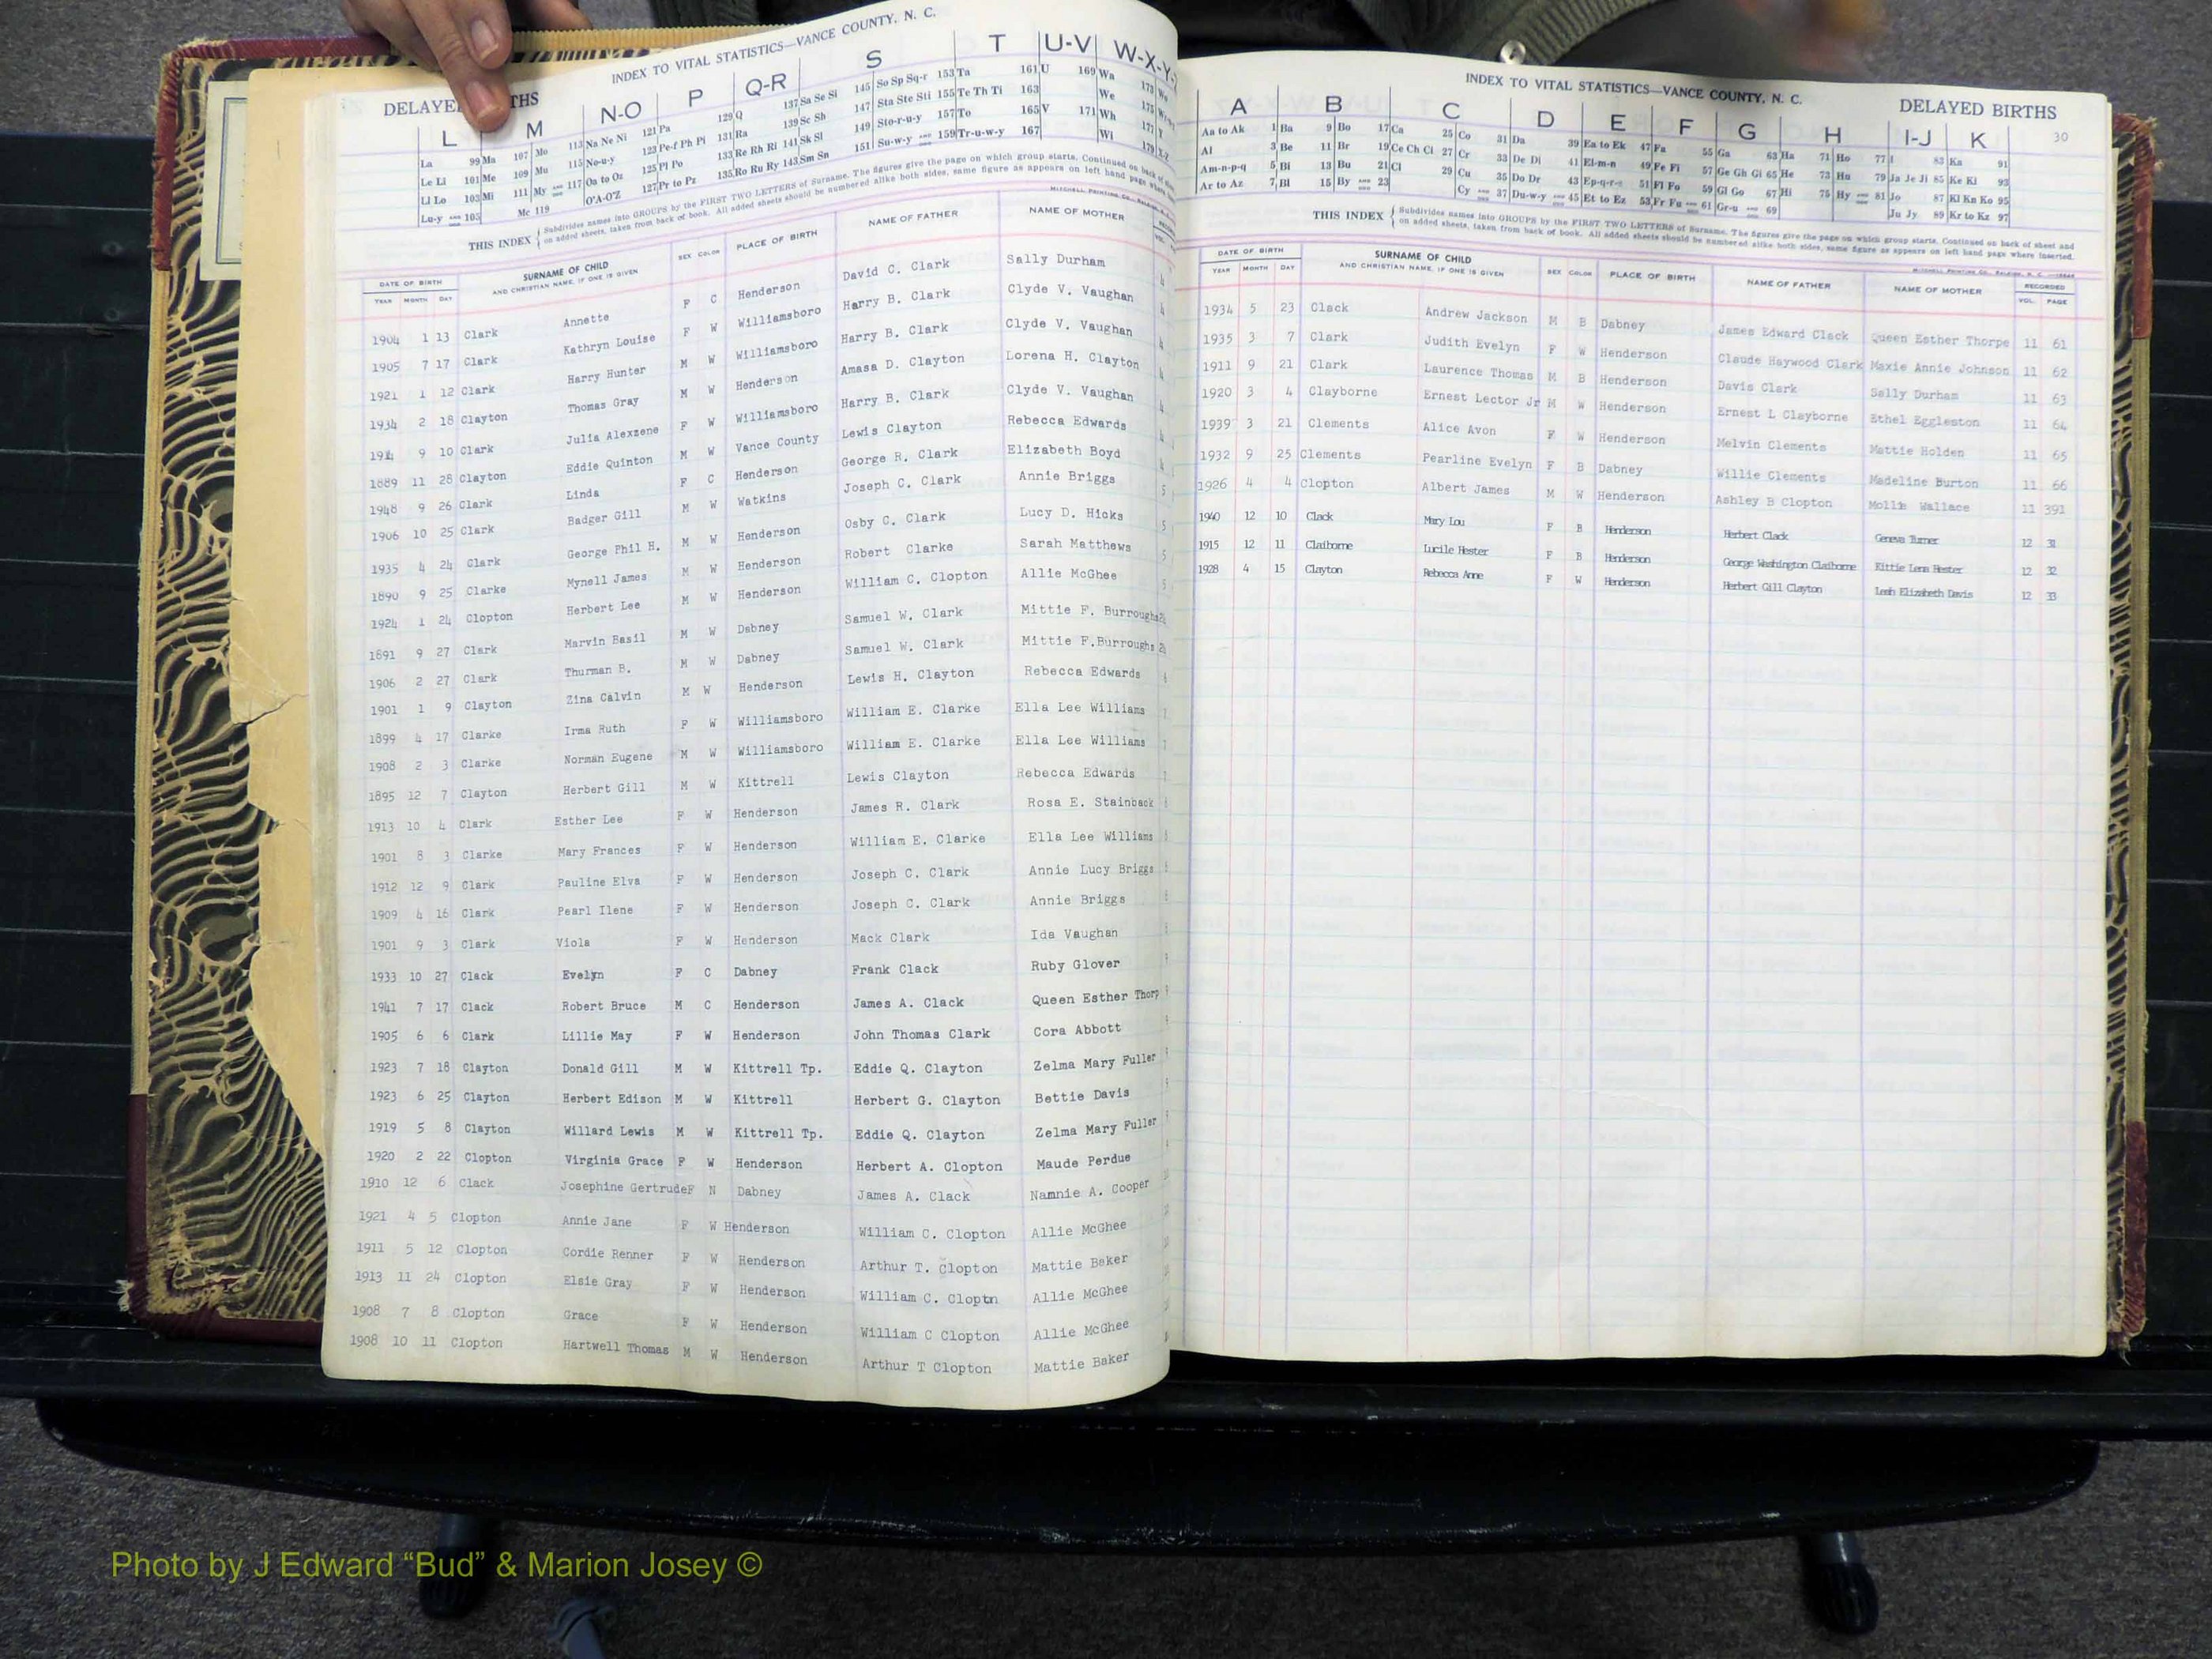 INDEX TO VITAL STATISTICS—VANCE COUNTY, N. C.
DELAYE THS
L M N-O P Q-R S T U-V W-X-Y-
La 99 Ma 107 Mo 113 Na Ne Ni 121 Pa 129 Q 137 Sa Se Si 145 So Sp Sq-r 153 Ta 161 U 169 Wa 173 Wo
Le Li 101 Me 109 Mu 115 No-u-y 123 Pe-f Ph Pi 131 Ra 139 Sc Sh 147 Sta Ste Sti 155 Te Th Ti 163 We 175
Ll Lo 103 Mi 111 My AND END 117 Oa to Oz 125 Pl Po 133 Re Rh Ri 141 Sk Sl 149 Sto-r-u-y 157 To 165 V 171 Wh 177 Y
Lu-y AND END 105 Mc 119 O'A-O'Z 127 Pr to Pz 135 Ro Ru Ry 143 Sm Sn 151 Su-w-y AND END 159 Tr-u-w-y 167 Wi 179 X-Z
THIS INDEX Subdivides names into GROUPS by the FIRST TWO LETTERS of Surname. The figures give the page on which group starts. Continued on back of
on added sheets, taken from back of book. All added sheets should be numbered alike both sides, same figure as appears on left hand page where
DATE OF BIRTH SURNAME OF CHILD SEX COLOR PLACE OF BIRTH NAME OF FATHER NAME OF MOTHER
YEAR MONTH DAY AND CHRISTIAN NAME, IF ONE IS GIVEN VOL.
1904 1 13 Clark Annette F C Henderson David C. Clark Sally Durham
1905 7 17 Clark Kathryn Louise F W Williamsboro Harry B. Clark Clyde V. Vaughan
1921 1 12 Clark Harry Hunter M W Williamsboro Harry B. Clark Clyde V. Vaughan
1934 2 18 Clayton Thomas Gray M W Henderson Amasa D. Clayton Lorena H. Clayton
1914 9 10 Clark Julia Alexzene F W Williamsboro Harry B. Clark Clyde V. Vaughan
1889 11 28 Clayton Eddie Quinton M W Vance County Lewis Clayton Rebecca Edwards
1948 9 26 Clark Linda F C Henderson George R. Clark Elizabeth Boyd
1906 10 25 Clark Badger Gill M W Watkins Joseph C. Clark Annie Briggs
1935 4 24 Clark George Phil H. M W Henderson Osby C. Clark Lucy D. Hicks
1890 9 25 Clarke Mynell James M W Henderson Robert Clarke Sarah Matthews
1924 1 24 Clopton Herbert Lee M W Henderson William C. Clopton Allie McGhee
1891 9 27 Clark Marvin Basil M W Dabney Samuel W. Clark Mittie F. Burroughs
1906 2 27 Clark Thurman B. M W Dabney Samuel W. Clark Mittie F.Burroughs
1901 1 9 Clayton Zina Calvin M W Henderson Lewis H. Clayton Rebecca Edwards
1899 4 17 Clarke Irma Ruth F W Williamsboro William E. Clarke Ella Lee Williams
1908 2 3 Clarke Norman Eugene M W Williamsboro William E. Clarke Ella Lee Williams
1895 12 7 Clayton Herbert Gill M W Kittrell Lewis Clayton Rebecca Edwards
1913 10 4 Clark Esther Lee F W Henderson James R. Clark Rosa E. Stainback
1901 8 3 Clarke Mary Frances F W Henderson William E. Clarke Ella Lee Williams
1912 12 9 Clark Pauline Elva F W Henderson Joseph C. Clark Annie Lucy Briggs
1909 4 16 Clark Pearl Ilene F W Henderson Joseph C. Clark Annie Briggs
1901 9 3 Clark Viola F W Henderson Mack Clark Ida Vaughan
1933 10 27 Clack Evelyn F C Dabney Frank Clack Ruby Glover
1941 7 17 Clack Robert Bruce M C Henderson James A. Clack Queen Esther Thorp
1905 6 6 Clark Lillie May F W Henderson John Thomas Clark Cora Abbott
1923 7 18 Clayton Donald Gill M W Kittrell Tp. Eddie Q. Clayton Zelma Mary Fuller
1923 6 25 Clayton Herbert Edison M W Kittrell Herbert G. Clayton Bettie Davis
1919 5 8 Clayton Willard Lewis M W Kittrell Tp. Eddie Q. Clayton Zelma Mary Fuller
1920 2 22 Clopton Virginia Grace F W Henderson Herbert A. Clopton Maude Perdue
1910 12 6 Clack Josephine GertrudeF N Dabney James A. Clack Namnie A. Cooper
1921 4 5 Clopton Annie Jane F W Henderson William C. Clopton Allie McGhee
1911 5 12 Clopton Cordie Renner F W Henderson Arthur T. Clopton Mattie Baker
1913 11 24 Clopton Elsie Gray F W Henderson William C. Cloptn Allie McGhee
1908 7 8 Clopton Grace F W Henderson William C Clopton Allie McGhee
1908 10 11 Clopton Hartwell Thomas M W Henderson Arthur T Clopton Mattie Baker
INDEX TO VITAL STATISTICS—VANCE COUNTY, N. C. DELAYED BIRTHS
30
A B C D E F G H I-J K
Aa to Ak 1 Ba 9 Bo 17 Ca 25 Co 31 Da 39 Ea to Ek 47 Fa 55 Ga 63 Ha 71 Ho 77 I 83 Ka 91
Al 3 Be 11 Br 19 Ce Ch Ci 27 Cr 33 De Di 41 El-m-n 49 Fe Fi 57 Ge Gh Gi 65 He 73 Hu 79 Ja Je Ji 85 Ke Ki 93
Am-n-p-q 5 Bi 13 Bu 21 Cl 29 Cu 35 Do Dr 43 Ep-q-r-s 51 Fl Fo 59 Gl Go 67 Hi 75 Hy AND END 81 Jo 87 Kl Kn Ko 95
Ar to Az 7 Bl 15 By AND END 23 Cy AND END 37 Du-w-y AND END 45 Et to Ez 53 Fr Fu AND END 61 Gr-u AND END 69 Ju Jy 89 Kr to Kz 97
THIS INDEX Subdivides names into GROUPS by the FIRST TWO LETTERS of Surname. The figures give the page on which group starts. Continued on back of sheet and
on added sheets, taken from back of book. All added sheets should be numbered alike both sides, same figure as appears on left hand page where inserted.
DATE OF BIRTH SURNAME OF CHILD SEX COLOR PLACE OF BIRTH NAME OF FATHER NAME OF MOTHER RECORDED
YEAR MONTH DAY AND CHRISTIAN NAME, IF ONE IS GIVEN VOL. PAGE
1934 5 23 Clack Andrew Jackson M B Dabney James Edward Clack Queen Esther Thorpe 11 61
1935 3 7 Clark Judith Evelyn F W Henderson Claude Haywood Clark Maxie Annie Johnson 11 62
1911 9 21 Clark Laurence Thomas M B Henderson Davis Clark Sally Durham 11 63
1920 3 4 Clayborne Ernest Lector Jr M W Henderson Ernest L Clayborne Ethel Eggleston 11 64
1939 3 21 Clements Alice Avon F W Henderson Melvin Clements Mattie Holden 11 65
1932 9 25 Clements Pearline Evelyn F B Dabney Willie Clements Madeline Burton 11 66
1926 4 4 Clopton Albert James M W Henderson Ashley B Clopton Mollie Wallace 11 391
1940 12 10 Clack Mary Lou F B Henderson Herbert Clack Geneva Turner 12 31
1915 12 11 Claiborne Lucile Hester F B Henderson George Washington Claiborne Kittie Lena Hester 12 32
1928 4 15 Clayton Rebecca Anne F W Henderson Herbert Gill Clayton Leah Elizabeth Davis 12 33
Photo by J Edward “Bud” & Marion Josey ©